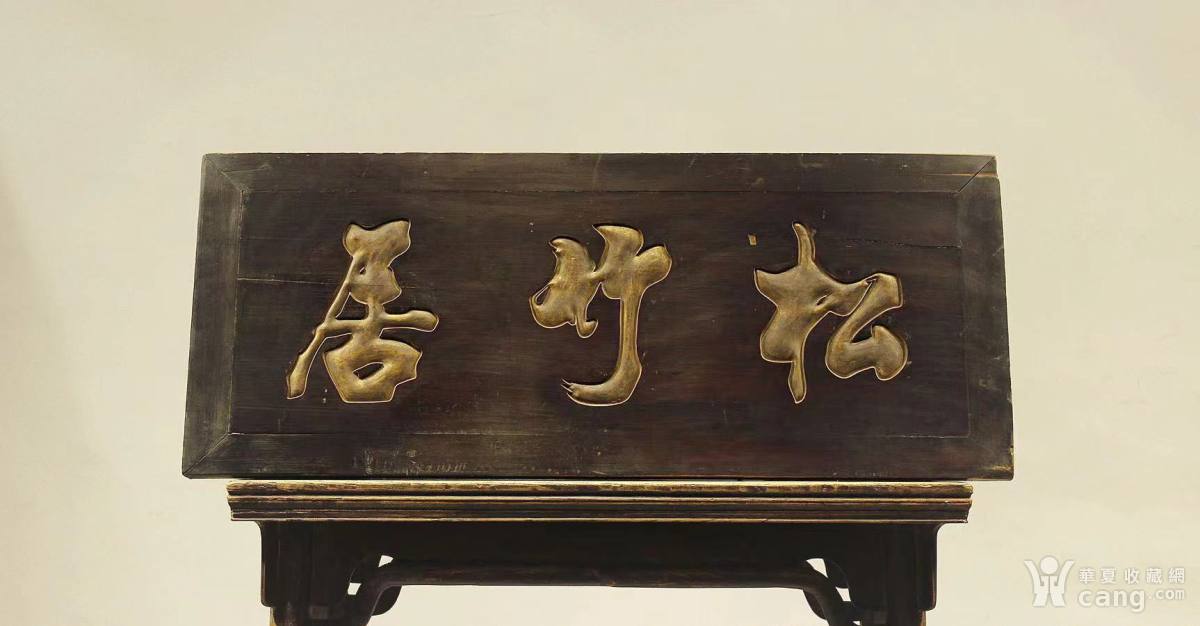 松竹居
華夏收藏網
cang.com